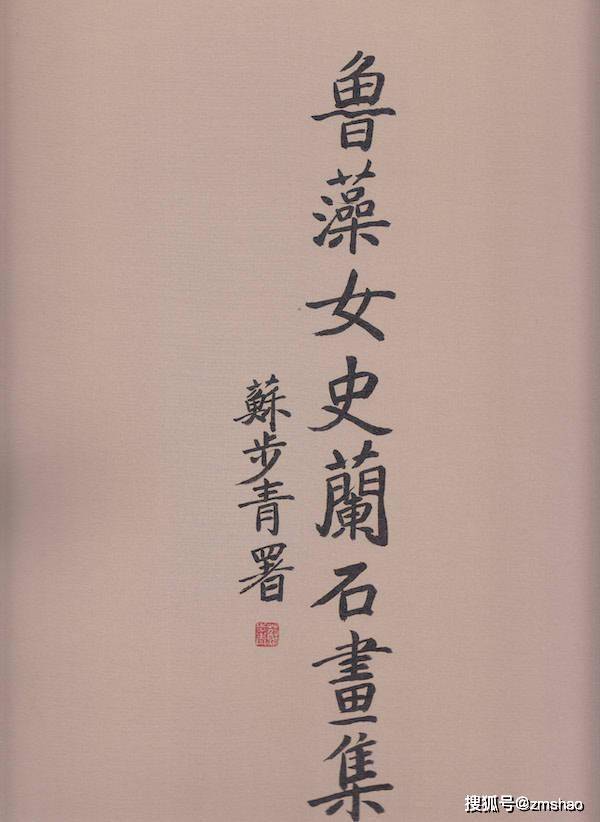 魯藻女史蘭石畫集
蘇步青署
搜狐号@zmshao